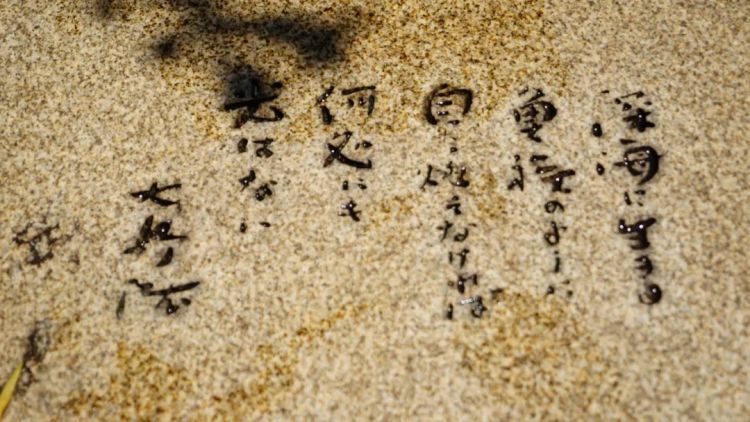 深海に生きる
魚族のように
自ら燃えなければ
何処にも
光はない
大島渚